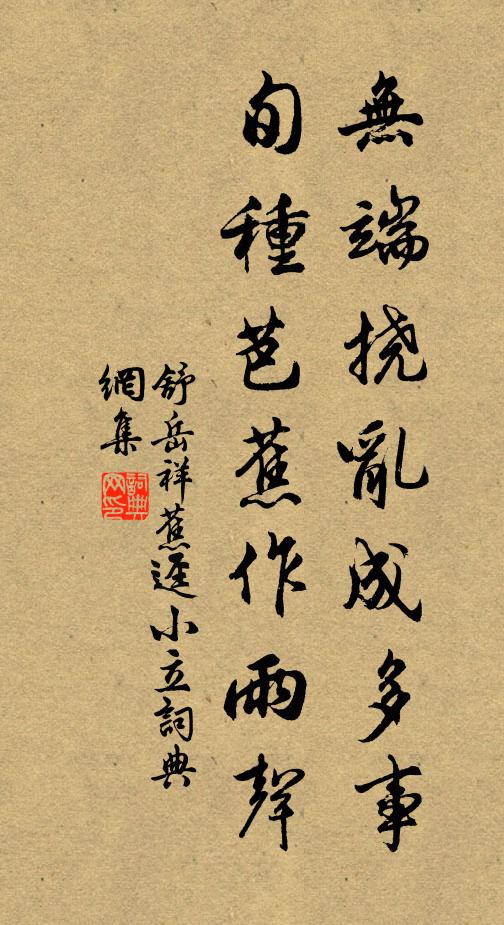 無端挠亂成多事
旬種芭蕉作雨聲
舒岳祥蕉逕小立詞典
網集
詞典
网印